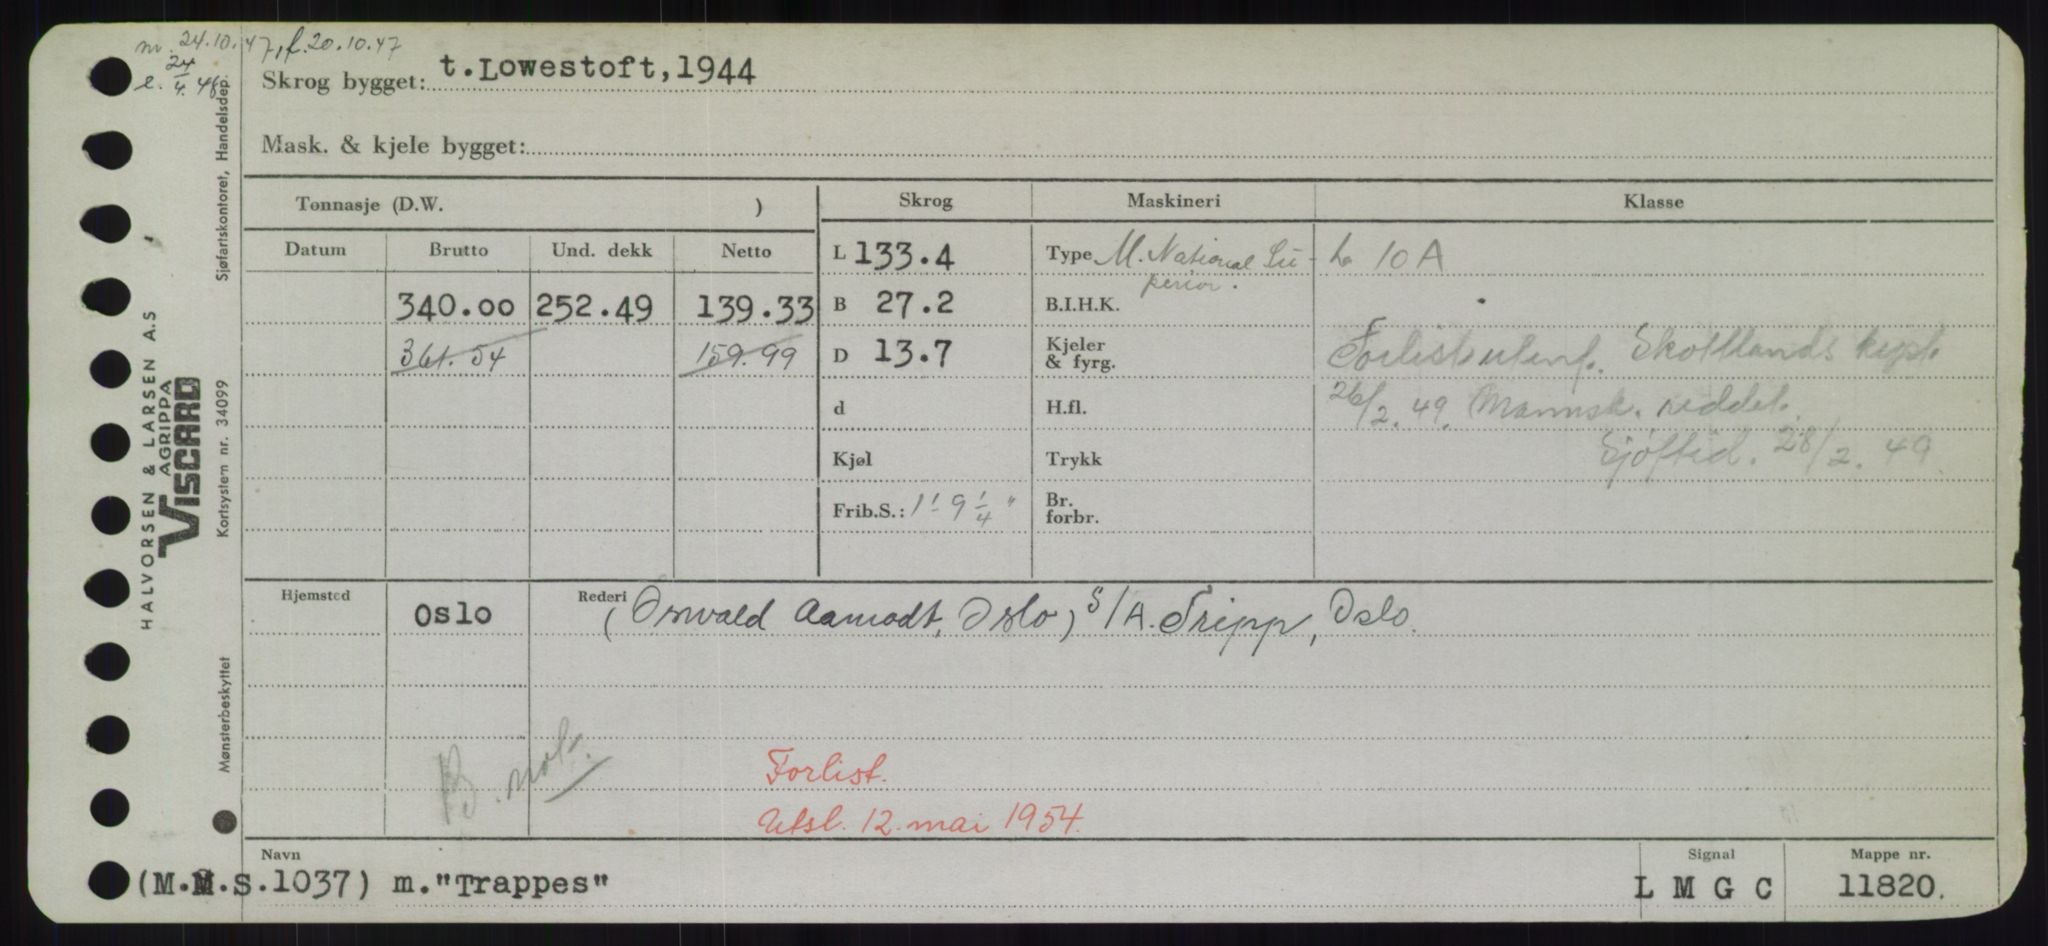 m. 24.10.47, f. 20.10.47
e. 24/4.48
Skrog bygget: t.Lowestoft,1944
Mask. & kjele bygget:
Tonnasje (D.W. )
Skrog
Maskineri
Klasse
Datum
Brutto
Und. dekk
Netto
L 133.4
Type M. National Su-
perior.
L 10 A
340.00 252.49 139.33
B 27.2
B.I.H.K.
361.54 159.99
D 13.7
Kjeler
& fyrg.
Forlist utenf. Skottlands kyst
d
H.fl.
26/2.49. Mannsk. reddet.
Kjøl
Trykk
Sjøftid. 28/2.49
Frib.S.: 1' 9 1/4"
Br.
forbr.
Hjemsted
Oslo
Rederi
(Osvald Aamodt, Oslo) S/A. Tripp, Oslo.
B. not.
Forlist.
Utsl. 12. mai 1954.
Navn
(M.M.S.1037) m."Trappes"
Signal
L M G C
Mappe nr.
11820.
Sjøfartskontoret, Handelsdep.
HALVORSEN & LARSEN A.S
AGRIPPA
VISCARD
Kortsystem nr. 34099
Mønsterbeskyttet